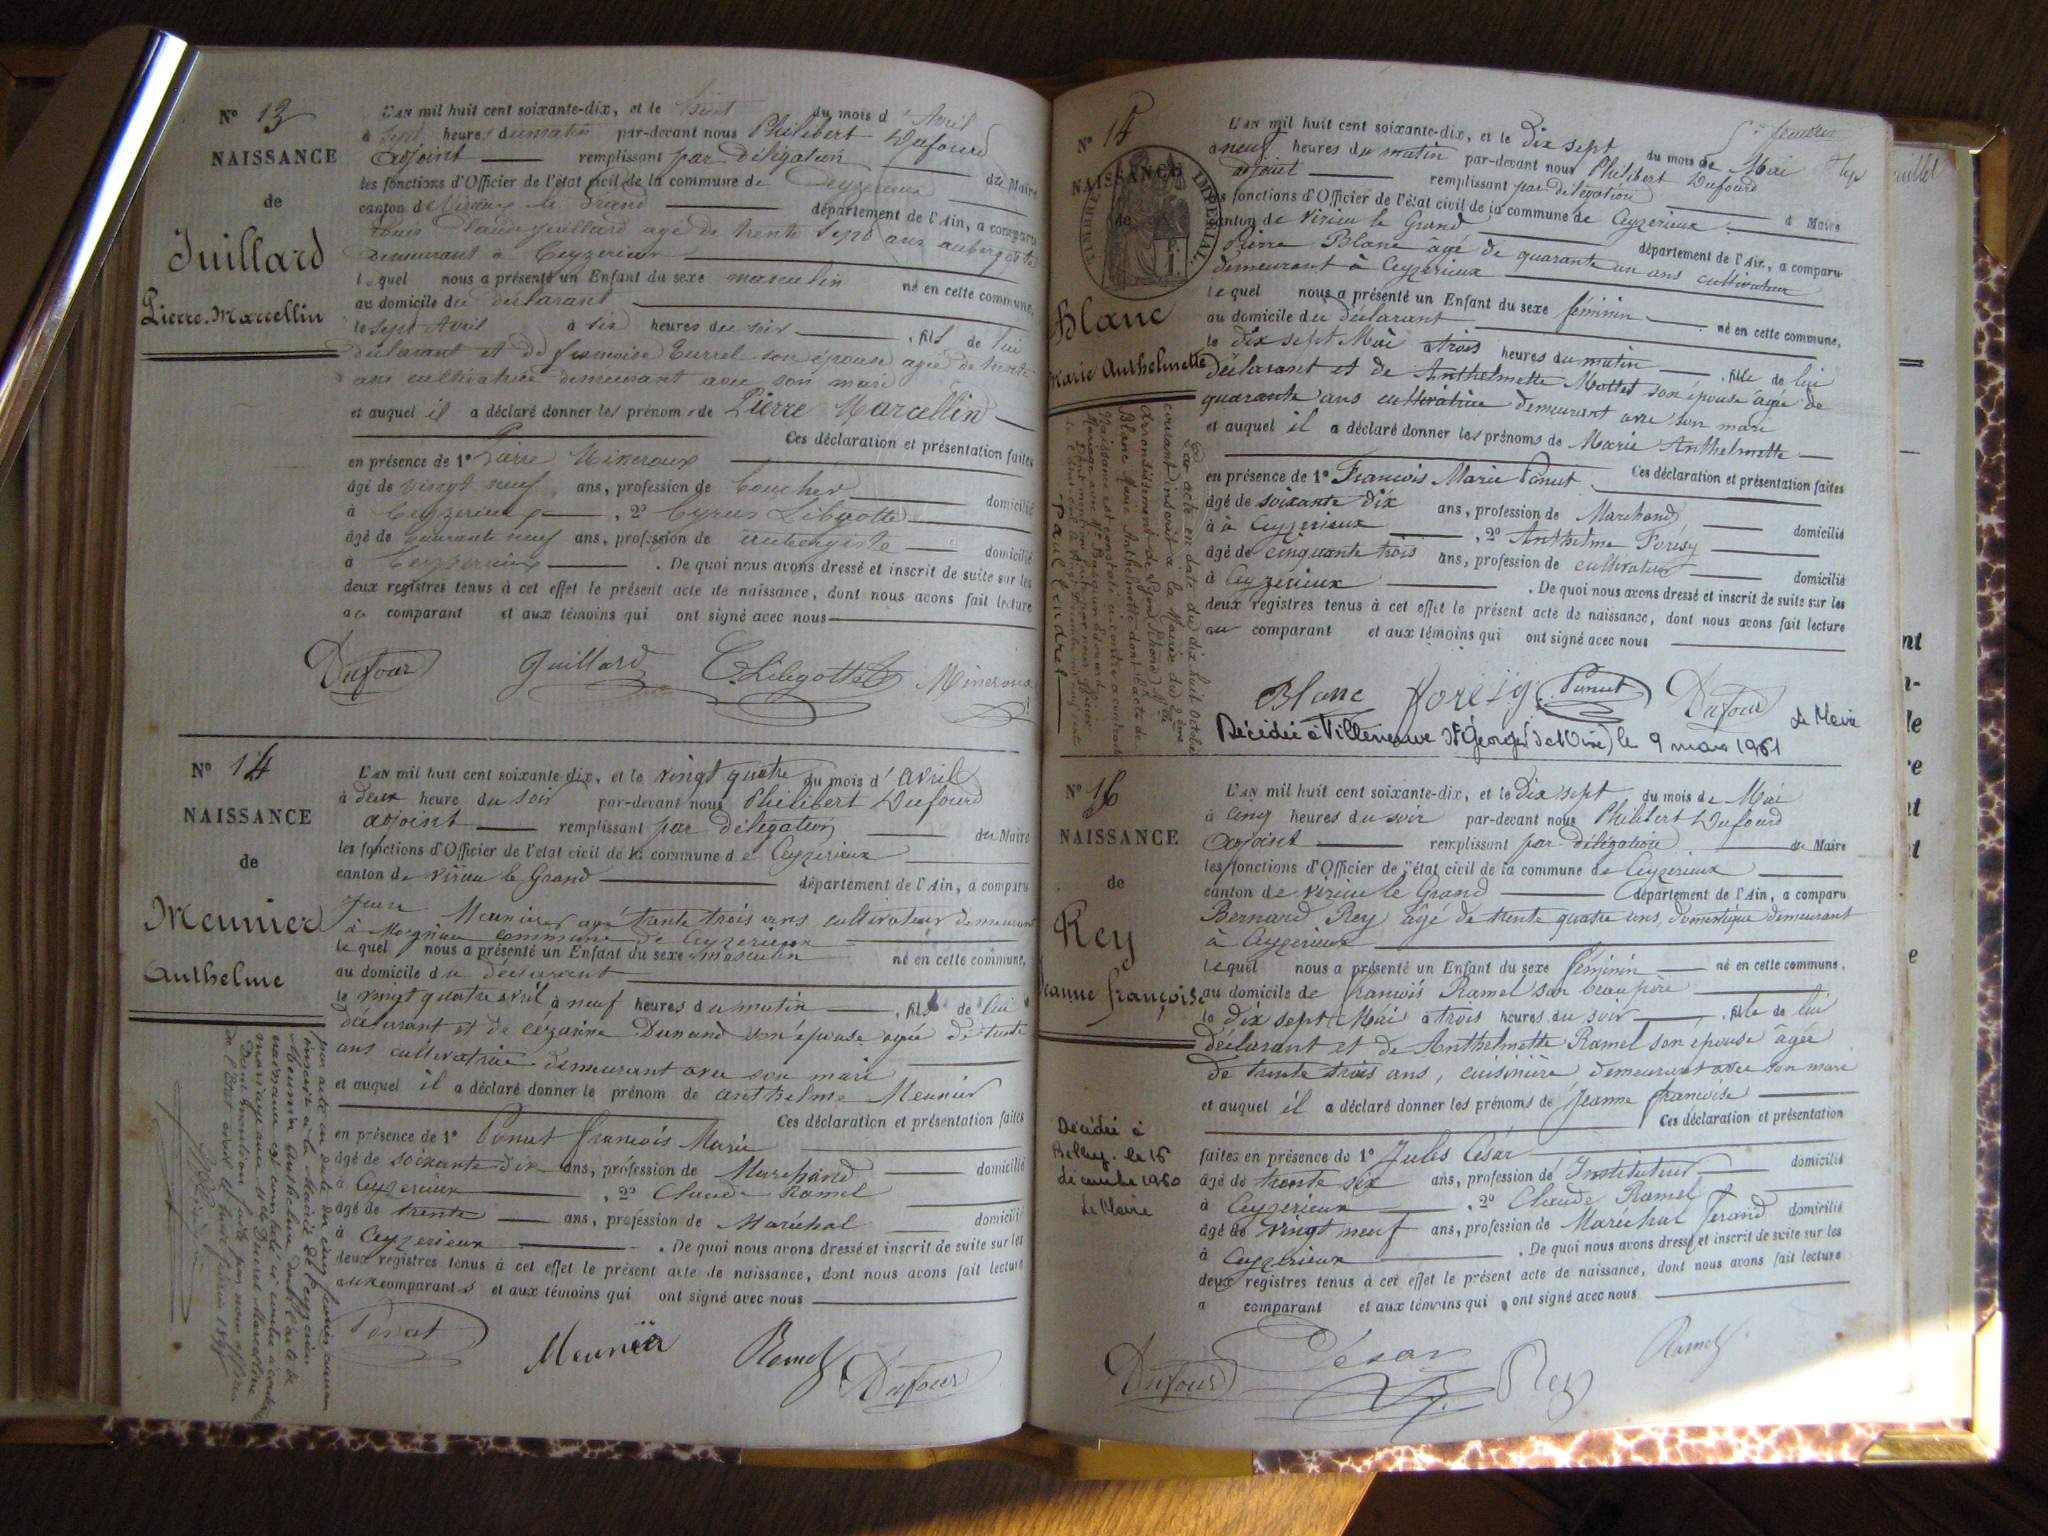 Nº 13
NAISSANCE
de
Juillard
Pierre-Marcellin
L'AN mil huit cent soixante-dix, et le huit du mois d'Avril
à sept heures du matin par-devant nous Philibert Dufourd
adjoint remplissant par délégation du Maire
les fonctions d'Officier de l'état civil de la commune de Ceyzerieux
canton de Virieux le Grand département de l'Ain, a comparu
Claude Juillard agé de trente sept ans aubergiste
demeurant à Ceyzerieux
lequel nous a présenté un Enfant du sexe masculin né en cette commune,
au domicile du déclarant
le sept Avril à six heures du soir , fils de lui
déclarant et de françoise Turrel son épouse agée de trente
ans cultivatrice demeurant avec son mari
et auquel il a déclaré donner les prénoms de Pierre Marcellin
Ces déclaration et présentation faites
en présence de 1º Pierre Mineroux
âgé de vingt neuf ans, profession de boucher domicilié
à Ceyzerieux , 2º Cyrus Libgotte
âgé de quarante neuf ans, profession de aubergiste domicilié
à Ceyzerieux . De quoi nous avons dressé et inscrit de suite sur les
deux registres tenus à cet effet le présent acte de naissance, dont nous avons fait lecture
au comparant et aux témoins qui ont signé avec nous
Dufour Juillard C. Libgotte Mineroux
Nº 14
NAISSANCE
de
Meunier
Anthelme
L'AN mil huit cent soixante-dix, et le vingt quatre du mois d'avril
à deux heure du soir par-devant nous Philibert Dufourd
adjoint remplissant par délégation du Maire
les fonctions d'Officier de l'état civil de la commune de Ceyzerieux
canton de virieu le Grand département de l'Ain, a comparu
Meunier agé trante trois ans cultivateur demeurant
à commune de Ceyzerieux
lequel nous a présenté un Enfant du sexe masculin né en cette commune,
au domicile du déclarant
le vingt quatre avril à neuf heures du matin , fils de lui
déclarant et de cézarine Dunand son épouse agée de trente
ans cultivatrice demeurant avec son mari
et auquel il a déclaré donner le prénom de anthelme Meunier
Ces déclaration et présentation faites
en présence de 1º Ponut françois Marie
âgé de soixante dix ans, profession de Marchand domicilié
à Ceyzerieux , 2º Claude Ramel
âgé de trente ans, profession de Maréchal domicilié
à Ceyzerieux . De quoi nous avons dressé et inscrit de suite sur les
deux registres tenus à cet effet le présent acte de naissance, dont nous avons fait lecture
aux comparants et aux témoins qui ont signé avec nous
Ponut Meunier Ramel Dufour
Nº 15
NAISSANCE
de
TIMBRE IMPERIAL
Blanc
Marie Anthelmette
L'AN mil huit cent soixante-dix, et le Dix sept du mois de Mai
à neuf heures du matin par-devant nous Philibert Dufourd
adjoint remplissant par délégation d Maire
les fonctions d'Officier de l'état civil de la commune de Ceyzerieux
canton de virieu le Grand département de l'Ain, a comparu
Pierre Blanc âgé de quarante un ans cultivateur
demeurant à Ceyzerieux
lequel nous a présenté un Enfant du sexe féminin né en cette commune,
au domicile du déclarant
le dix sept Mai à trois heures du matin , fille de lui
déclarant et de Anthelmette Mottet son épouse âgée de
quarante ans cultivatrice demeurant avec son mari
et auquel il a déclaré donner les prénoms de Marie Anthelmette
Ces déclaration et présentation faites
en présence de 1º François Marie Ponut
âgé de soixante dix ans, profession de Marchand domicilié
à à Ceyzerieux , 2º Anthelme Forésy
âgé de cinquante trois ans, profession de cultivateur domicilié
à Ceyzerieux . De quoi nous avons dressé et inscrit de suite sur les
deux registres tenus à cet effet le présent acte de naissance, dont nous avons fait lecture
au comparant et aux témoins qui ont signé avec nous
Blanc Ponut Dufour
Décédée à Villeneuve St Georges (S et Oise) le 9 mars 1961 Le Maire
Par acte en date du dix huit Octobre
courant inscrit à la Mairie du 2ème
arrondissement de Lyon
Nº 16
NAISSANCE
de
Rey
Jeanne françoise
Décédée à
Belley le 16
décembre 1960
Le Maire
L'AN mil huit cent soixante-dix, et le Dix sept du mois de Mai
à cinq heures du soir par-devant nous Philibert Dufourd
adjoint remplissant par délégation du Maire
les fonctions d'Officier de l'état civil de la commune de Ceyzerieux
canton de virieu le Grand département de l'Ain, a comparu
Bernard Rey âgé de trente quatre ans, domestique demeurant
à Ceyzerieux
lequel nous a présenté un Enfant du sexe féminin né en cette commune,
au domicile de françois Ramel son beau père
le dix sept Mai à trois heures du soir , fille de lui
déclarant et de Anthelmette Ramel son épouse âgée
de trente trois ans, cuisinière demeurant avec son mari
et auquel il a déclaré donner les prénoms de Jeanne françoise
Ces déclaration et présentation
faites en présence de 1º Jules César
âgé de trente six ans, profession de Instituteur domicilié
à Ceyzerieux , 2º Claude Ramel
âgé de vingt neuf ans, profession de Maréchal ferand domicilié
à Ceyzerieux . De quoi nous avons dressé et inscrit de suite sur les
deux registres tenus à cet effet le présent acte de naissance, dont nous avons fait lecture
a comparant et aux témoins qui ont signé avec nous
Dufour César Rey Ramel